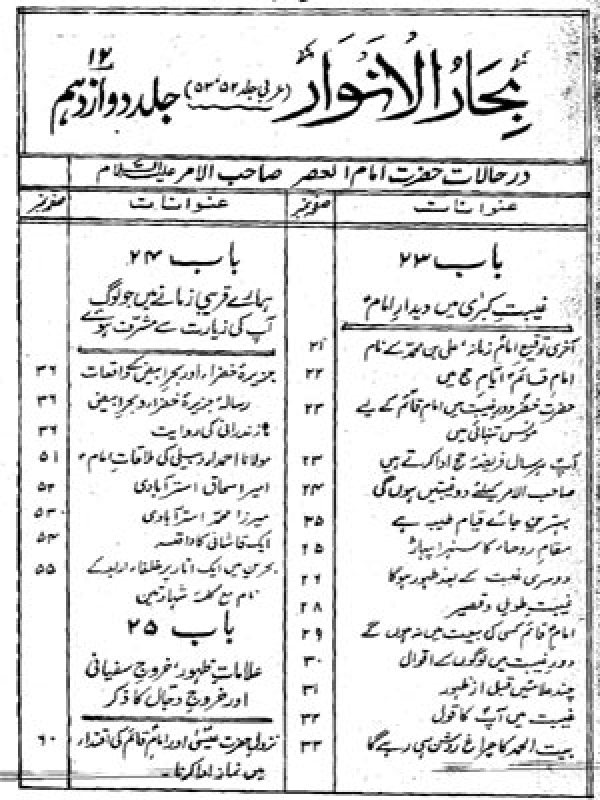 بحار الانوار (عربی جلد ۵۲، ۵۳) جلد دوازدہم ۱۲
در حالات حضرت امام العصر صاحب الامر علیہ السلام
عنوانات صفحہ نمبر
باب ۲۳
غیبتِ کبریٰ میں دیدارِ امامؑ
آخری توقیع امام زمانہؑ علی بن محمد کے نام ۲۱
امام قائمؑ ایامِ حج میں ۲۲
حضرت خضر دورِ غیبت میں امام قائم کے لیے ۲۳
مونس تنہائی ہیں
آپ ہر سال فریضۂ حج ادا کرتے ہیں ۲۳
صاحب الامر کیلئے دو غیبتیں ہوں گی ۲۴
بہترین جائے قیام طیبہ ہے ۲۵
مقامِ روحاء کا سنہرا پہاڑ ۲۵
دوسری غیبت کے بعد ظہور ہوگا ۲۶
غیبتِ طویل و قصیر ۲۸
امام قائم کسی کی بیعت میں نہ ہوں گے ۲۹
دورِ غیبت میں لوگوں کے اقوال ۳۰
چند علامتیں قبل از ظہور ۳۱
غیبت میں آپؑ کا قول ۳۲
بیت الحمد کا چراغ روشن ہی رہے گا ۳۳
عنوانات صفحہ نمبر
باب ۲۴
ہمارے قریبی زمانے میں جو لوگ
آپ کی زیارت سے مشرف ہوئے
جزیرۂ خضراء اور بحرِ ابیض کے واقعات ۳۶
رسالہ جزیرۂ خضراء و بحرِ ابیض ۳۶
مازندرانی کی روایت ۳۶
مولانا احمد اردبیلی کی ملاقاتِ امامؑ ۵۱
امیر اسحاق استرآبادی ۵۲
میرزا محمد استرآبادی ۵۳
ایک قاشانی کا واقعہ ۵۴
بحرین میں ایک انار پر خلفاء اربعہ کے ۵۵
نام مع کلمہ شہادتین
باب ۲۵
علاماتِ ظہور، خروجِ سفیانی
اور خروجِ دجال کا ذکر
نزولِ حضرت عیسیٰؑ اور امام قائم کی اقتداء ۶۰
میں نماز ادا کرنا۔